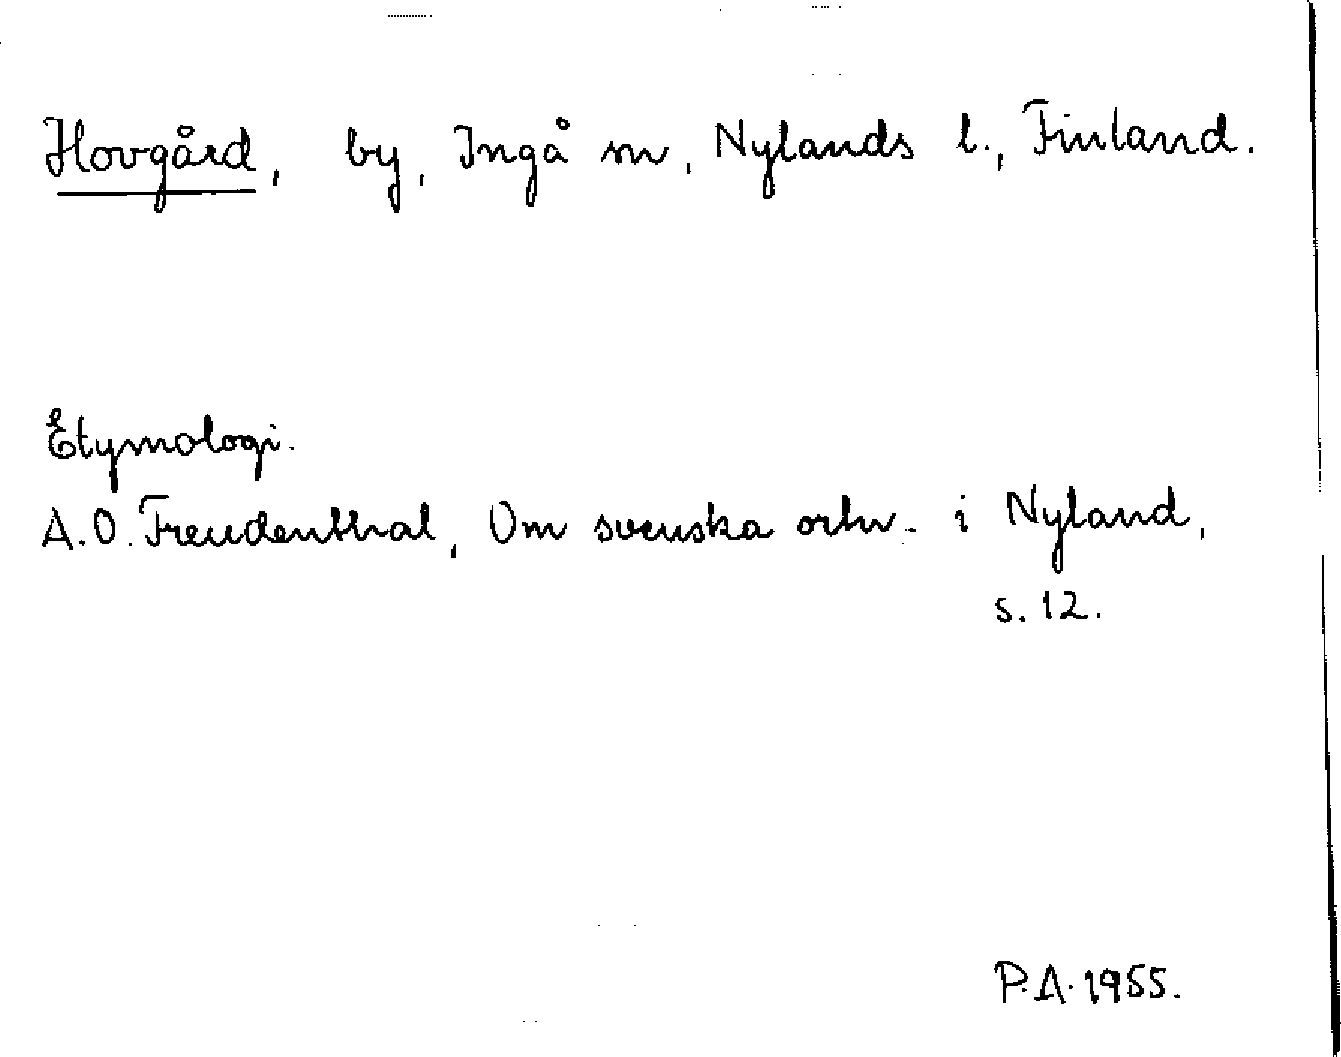 Hovgård, by, Ingå sn, Nylands l., Finland.
Etymologi.
A.O. Freudenthal, Om svenska ortn. i Nyland,
s. 12.
P.A. 1955.